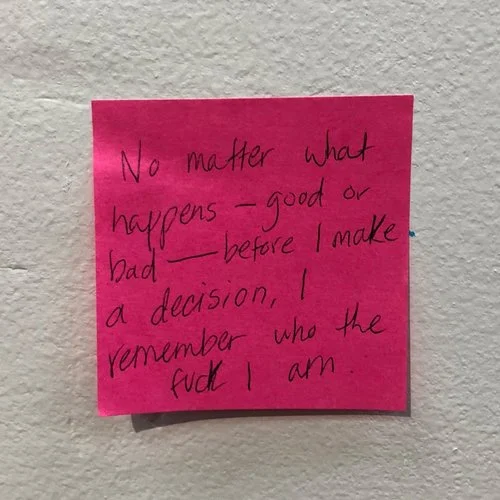 No matter what
happens – good or
bad — before I make
a decision, I
remember who the
fuck I am.